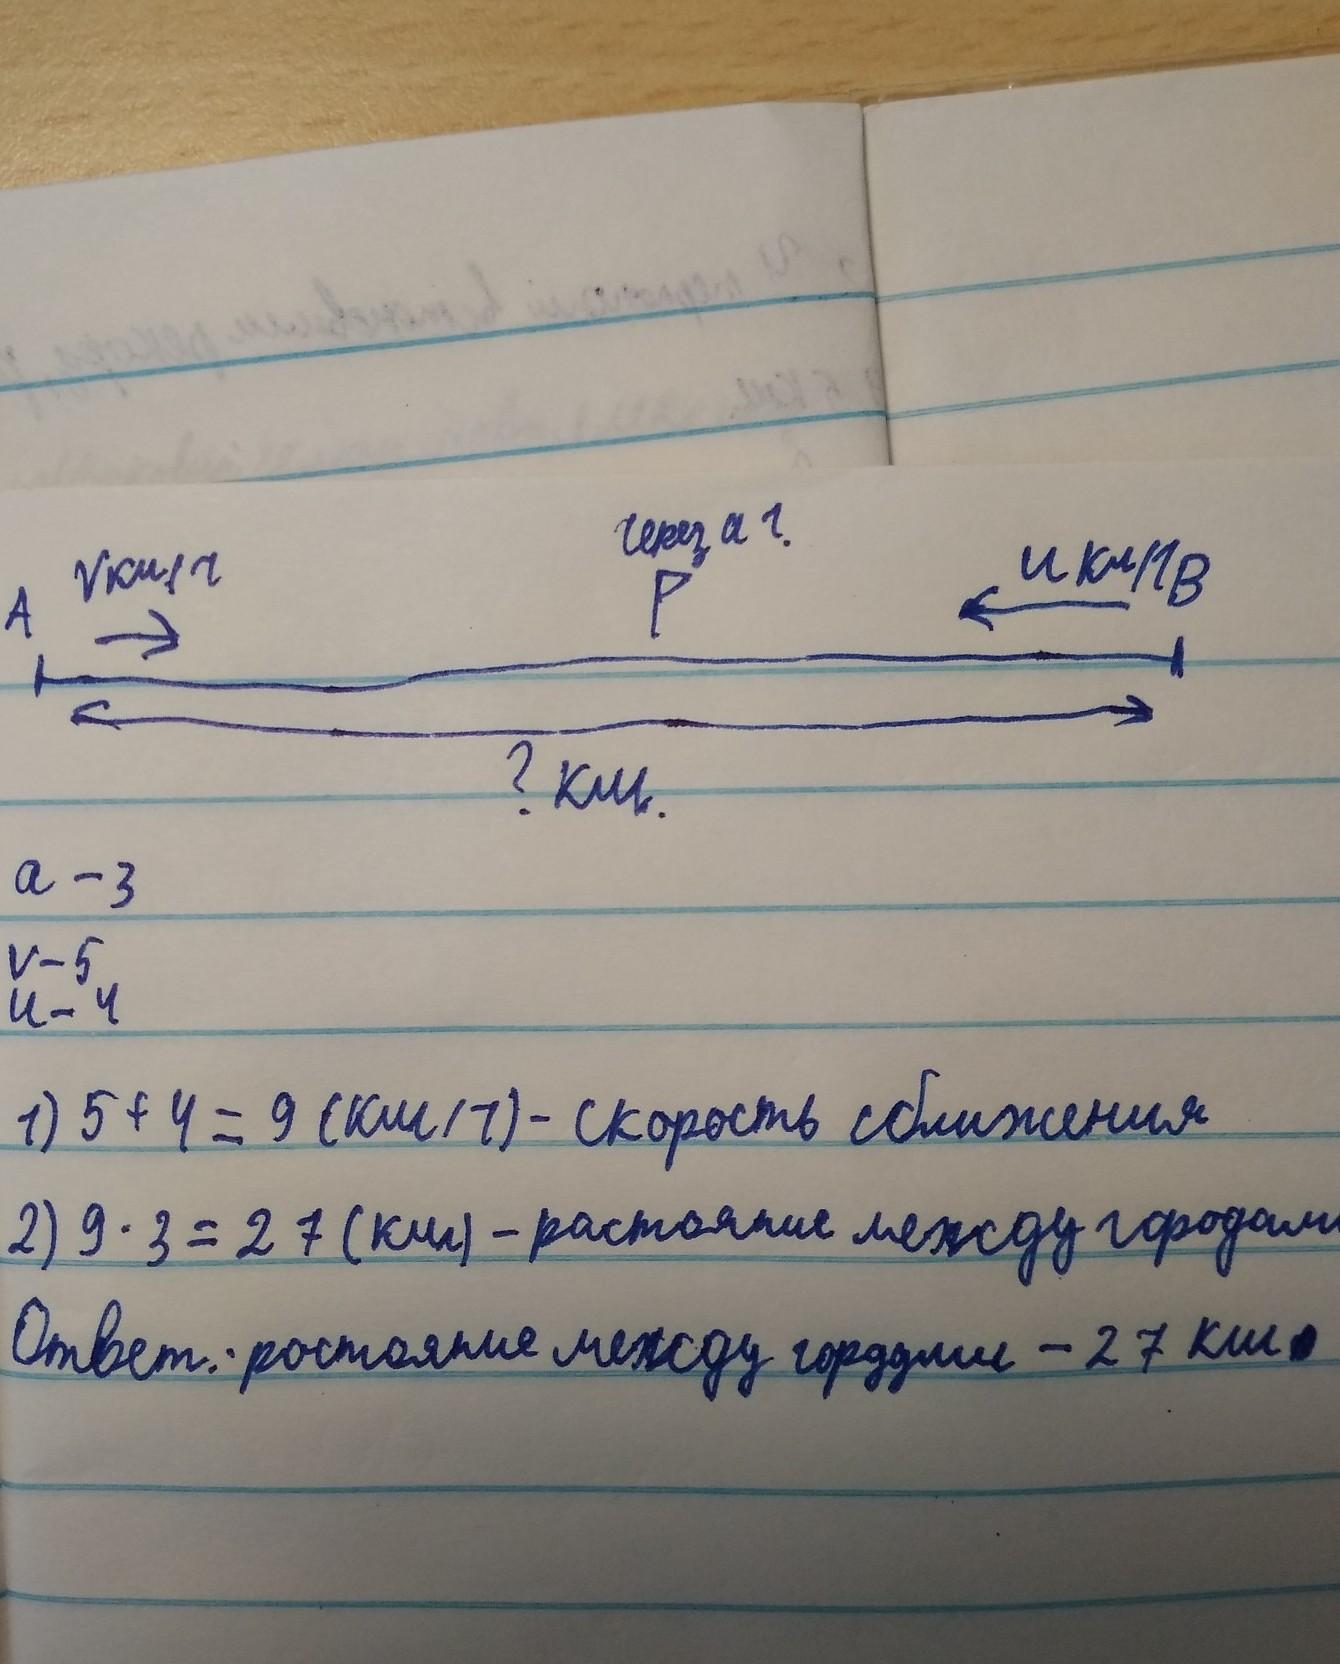 через а ч.
V км/ч
u км/ч
А
В
? км.
а - 3
V - 5
u - 4
1) 5 + 4 = 9 (км/ч) - скорость сближения
2) 9 · 3 = 27 (км) - растояние между городами
Ответ: ростояние между - 27 км.